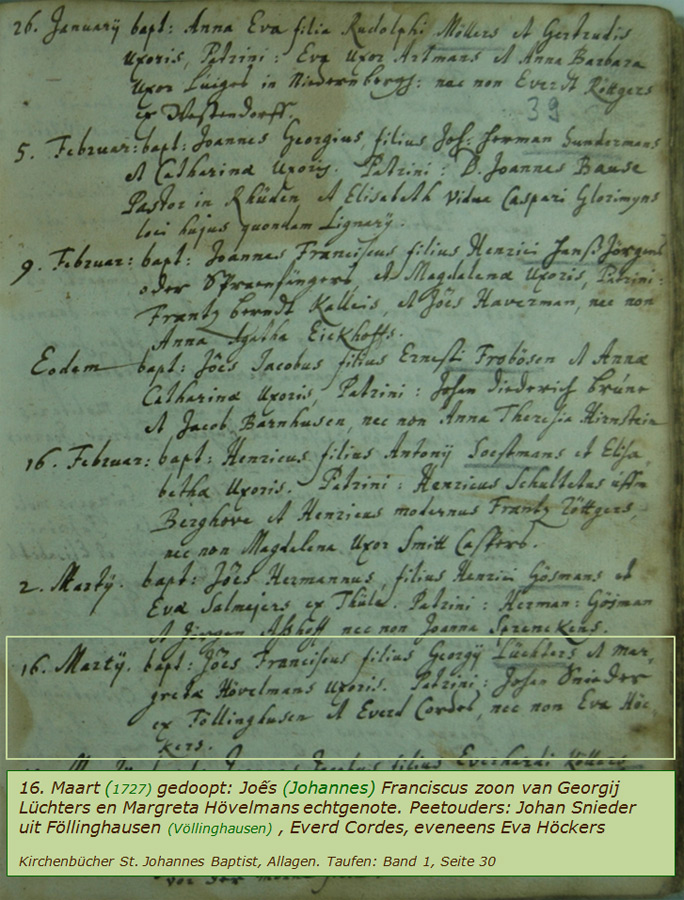 26. Januarÿ bapt: Anna Eva filia Rudolphi Möllers et Gertrudis
Uxoris, Patrini: Eva Uxor Artmans et Anna Barbara
Uxor Luiges in Niedernbergh: nec non Everdt Röttgers
ex Westendorff.
39
5. Februar: bapt: Joannes Georgius filius Joh: Herman Sundermans
et Catharinæ Uxoris. Patrini: D. Joannes Bause
Pastor in Rhüden et Elisabeth vidua Caspari
loci hujus quondam
9. Februar: bapt: Joannes Franciscus filius Henrici
oder et Magdalenæ Uxoris, Patrini:
Frantz berndt Kalleis, et Jões Haverman, nec non
Anna Agatha Eickhoffs.
Eodem bapt: Jões Jacobus filius Ernesti Frobösen et Annæ
Catharinæ Uxoris, Patrini: Johan diederich brüne
et Jacob Barnhusen, nec non Anna Theresia Hirnstein
16. Februar: bapt: Henricus filius Antonÿ Soestmans et Elisa
bethæ Uxoris. Patrini: Henricus Schultetus
Berghove et Henricus modernus Frantz Röttgers,
nec non Magdalena Uxor Smitt Caspers.
2. Martÿ. bapt: Jões Hermannus, filius Henrici Gösmans et
Evæ Salmejers ex Thüle. Patrini: Herman: Gösman
et Jürgen nec non Joanna Sprenckens.
16. Martÿ. bapt: Jões Franciscus filius Georgÿ Lüchters et Mar,
gretæ Hövelmans Uxoris. Patrini: Johan Snieder
ex Föllinghusen et Everd Cordes, nec non Eva Höc
kers.
bapt: Joannes Jacobus filius Everhardi
16. Maart (1727) gedoopt: Joẽs (Johannes) Franciscus zoon van Georgij
Lüchters en Margreta Hövelmans echtgenote. Peetouders: Johan Snieder
uit Föllinghausen (Völlinghausen) , Everd Cordes, eveneens Eva Höckers
Kirchenbücher St. Johannes Baptist, Allagen. Taufen: Band 1, Seite 30